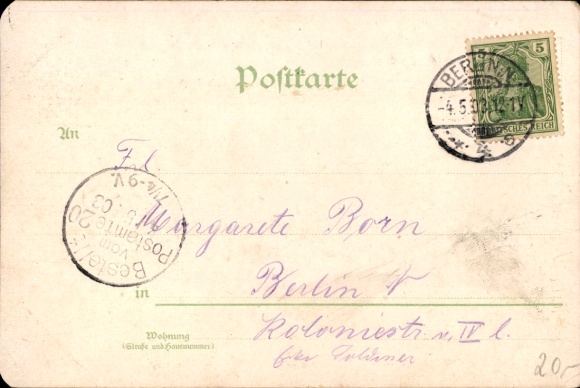 Postkarte
5
DEUTSCHES REICH
BERLIN N.
-4.5.03.12-1V.
An
Frl
Margarete Born
in Berlin N
Wohnung
(Straße und Hausnummer)
Koloniestr. IV l.
Bestellt
vom
Postamte 20
03
7½-9V.
20,-